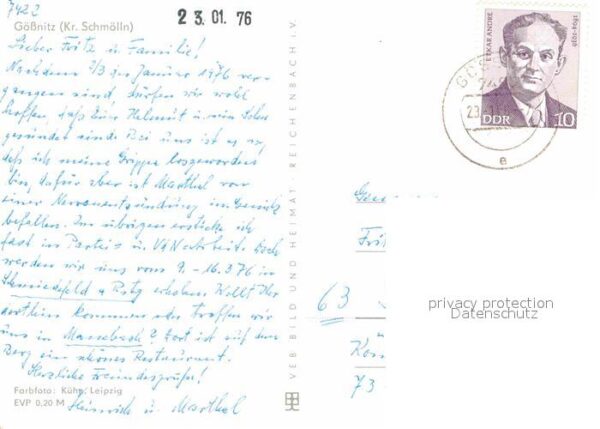 7422
23.01.76
Gößnitz (Kr. Schmölln)
Lieber Fritz u. Familie!
Nachdem 2/3 des Januar 1976 ver-
gangen sind, dürfen wir wohl
hoffen, daß Eure Helmut u. sein Sohn
gesündet sind. Bei uns ist es so,
daß ich meine Grippe losgeworden
bin, dafür aber ist Marthel von
einer Nervenentzündung im Genick
befallen. Im übrigen ersticke ich
fast in Partei- u. VdN arbeit. Doch
werden wir uns vom 9. - 16.3.76 in
Schmiedefeld a Rstg erholen. Wollt Ihr
dorthin kommen oder treffen wir
uns in Manebach? Dort ist auf dem
Berg ein schönes Restaurant.
Herzliche Freundesgrüße!
Heinrich u. Marthel
Farbfoto: Kühn, Leipzig
EVP 0,20 M
VEB BILD UND HEIMAT REICHENBACH I. V.
ETKAR ANDRE
1894-1936
DDR
10
GÖSS
e
Fri
63
Kon
73
privacy protection
Datenschutz